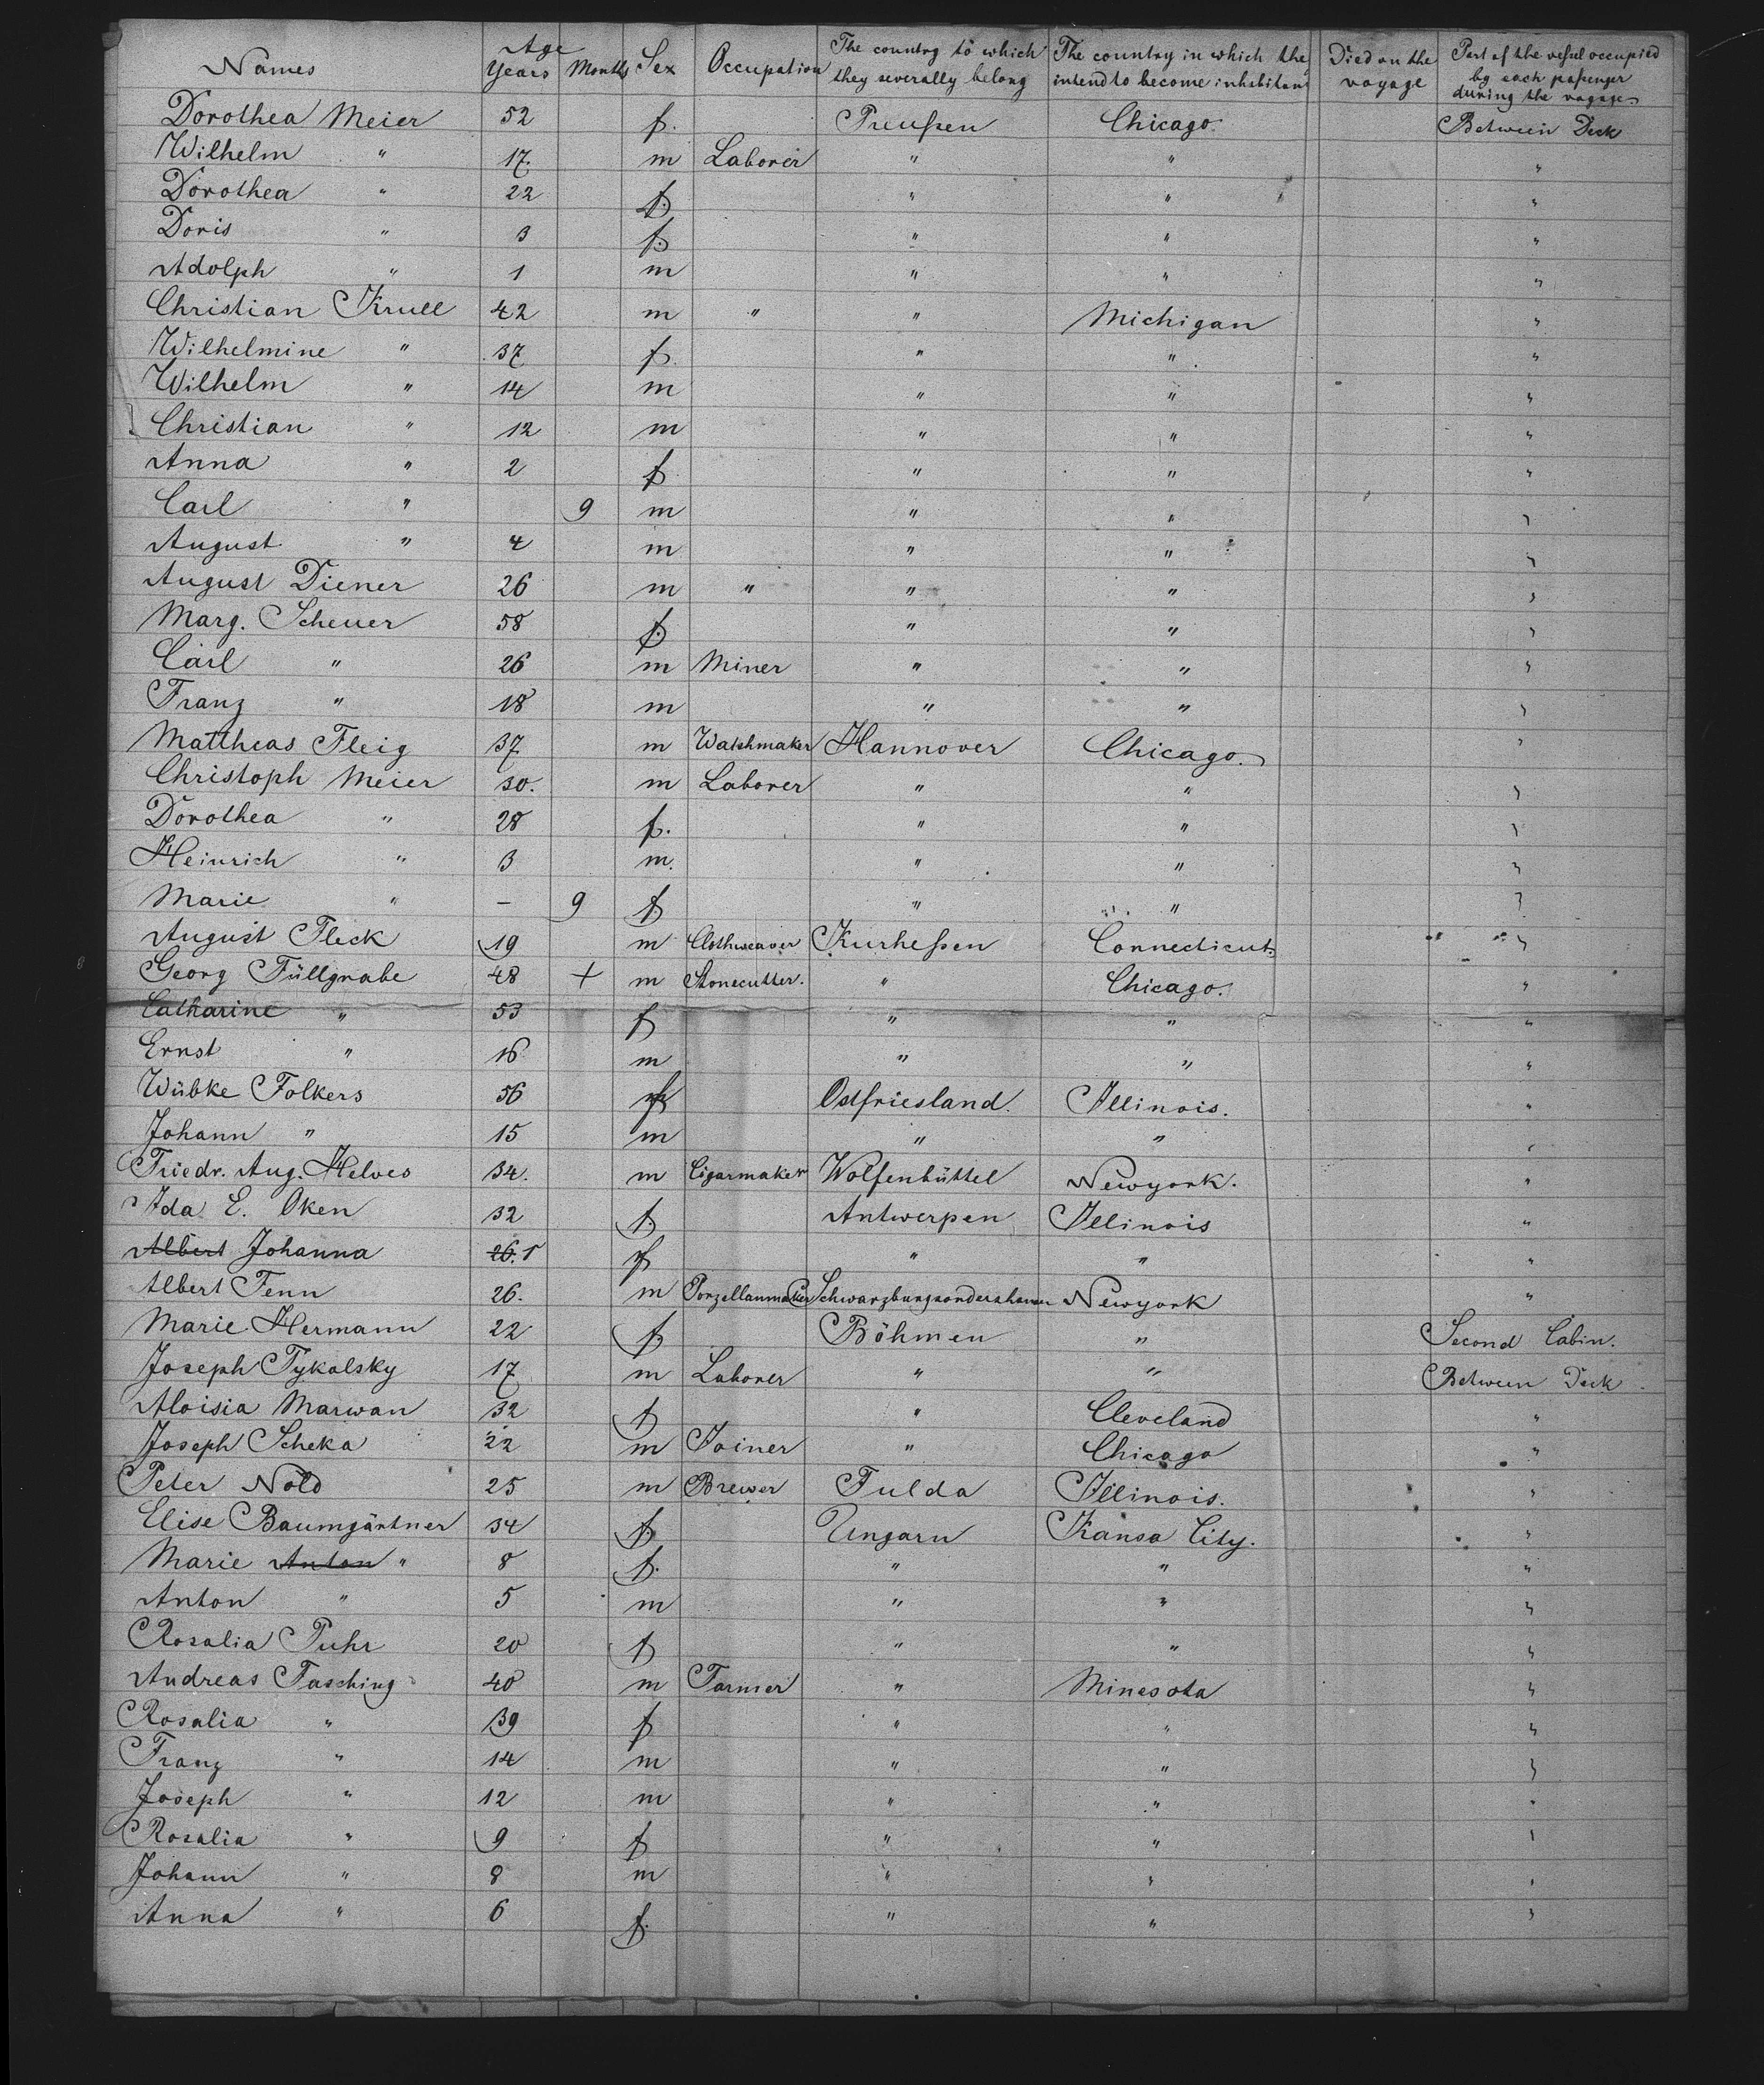 Names Age Years Months Sex Occupation The country to which they severally belong The country in which the intend to become inhabitan Died on the voyage Part of the veßel occupied by each paßenger during the voyage
Dorothea Meier 52 f. Preußen Chicago. Between Deck
Wilhelm " 17. m Laborer " " "
Dorothea " 22 f. " " "
Doris " 3 f. " " "
Adolph " 1 m " " "
Christian Krull 42 m " " Michigan "
Wilhelmine " 37 f. " " "
Wilhelm " 14 m " " "
Christian " 12 m " " "
Anna " 2 f " " "
Carl " 9 m " " "
August " 4 m " " "
August Diener 26 m " " " "
Marg. Scheuer 58 f. " " "
Carl " 26 m Miner " " "
Franz " 18 m " " "
Mattheas Fleig 37 m Watchmaker Hannover Chicago. "
Christoph Meier 30. m Laborer " " "
Dorothea " 28 f. " " "
Heinrich " 3 m. " " "
Marie " – 9 f. " " "
August Fleck 19 m Clothweaver Kurheßen Connecticut. "
Georg Füllgrabe 48 + m Stonecutter. " Chicago. "
Catharine " 53 f " " "
Ernst " 16 m " " "
Wübke Folkers 56 f Ostfriesland. Illinois. "
Johann " 15 m " " "
Friedr. Aug. Helves 34. m Cigarmaker Wolfenbüttel Newyork. "
Ida E. Oken 32 f. Antwerpen Illinois "
Albert Johanna 26. 1 f " " "
Albert Fenn 26. m Porzellanmaker Schwarzburgsondershausen Newyork "
Marie Hermann 22 f. Böhmen " Second Cabin.
Joseph Tykalsky 17 m Laborer " " Between Deck
Aloisia Marwan 32 f " Cleveland "
Joseph Scheka 22 m Joiner " Chicago "
Peter Nold 25 m Brewer Fulda Illinois. "
Elise Baumgärtner 34 f. Ungarn Kansa City. "
Marie Anton " 8 f. " " "
Anton " 5 m " " "
Rosalia Puhr 20 f " " "
Andreas Fasching 40 m Farmer " Minesota "
Rosalia " 39 f " " "
Franz " 14 m " " "
Joseph " 12 m " " "
Rosalia " 9 f " " "
Johann " 8 m " " "
Anna " 6 f. " " "